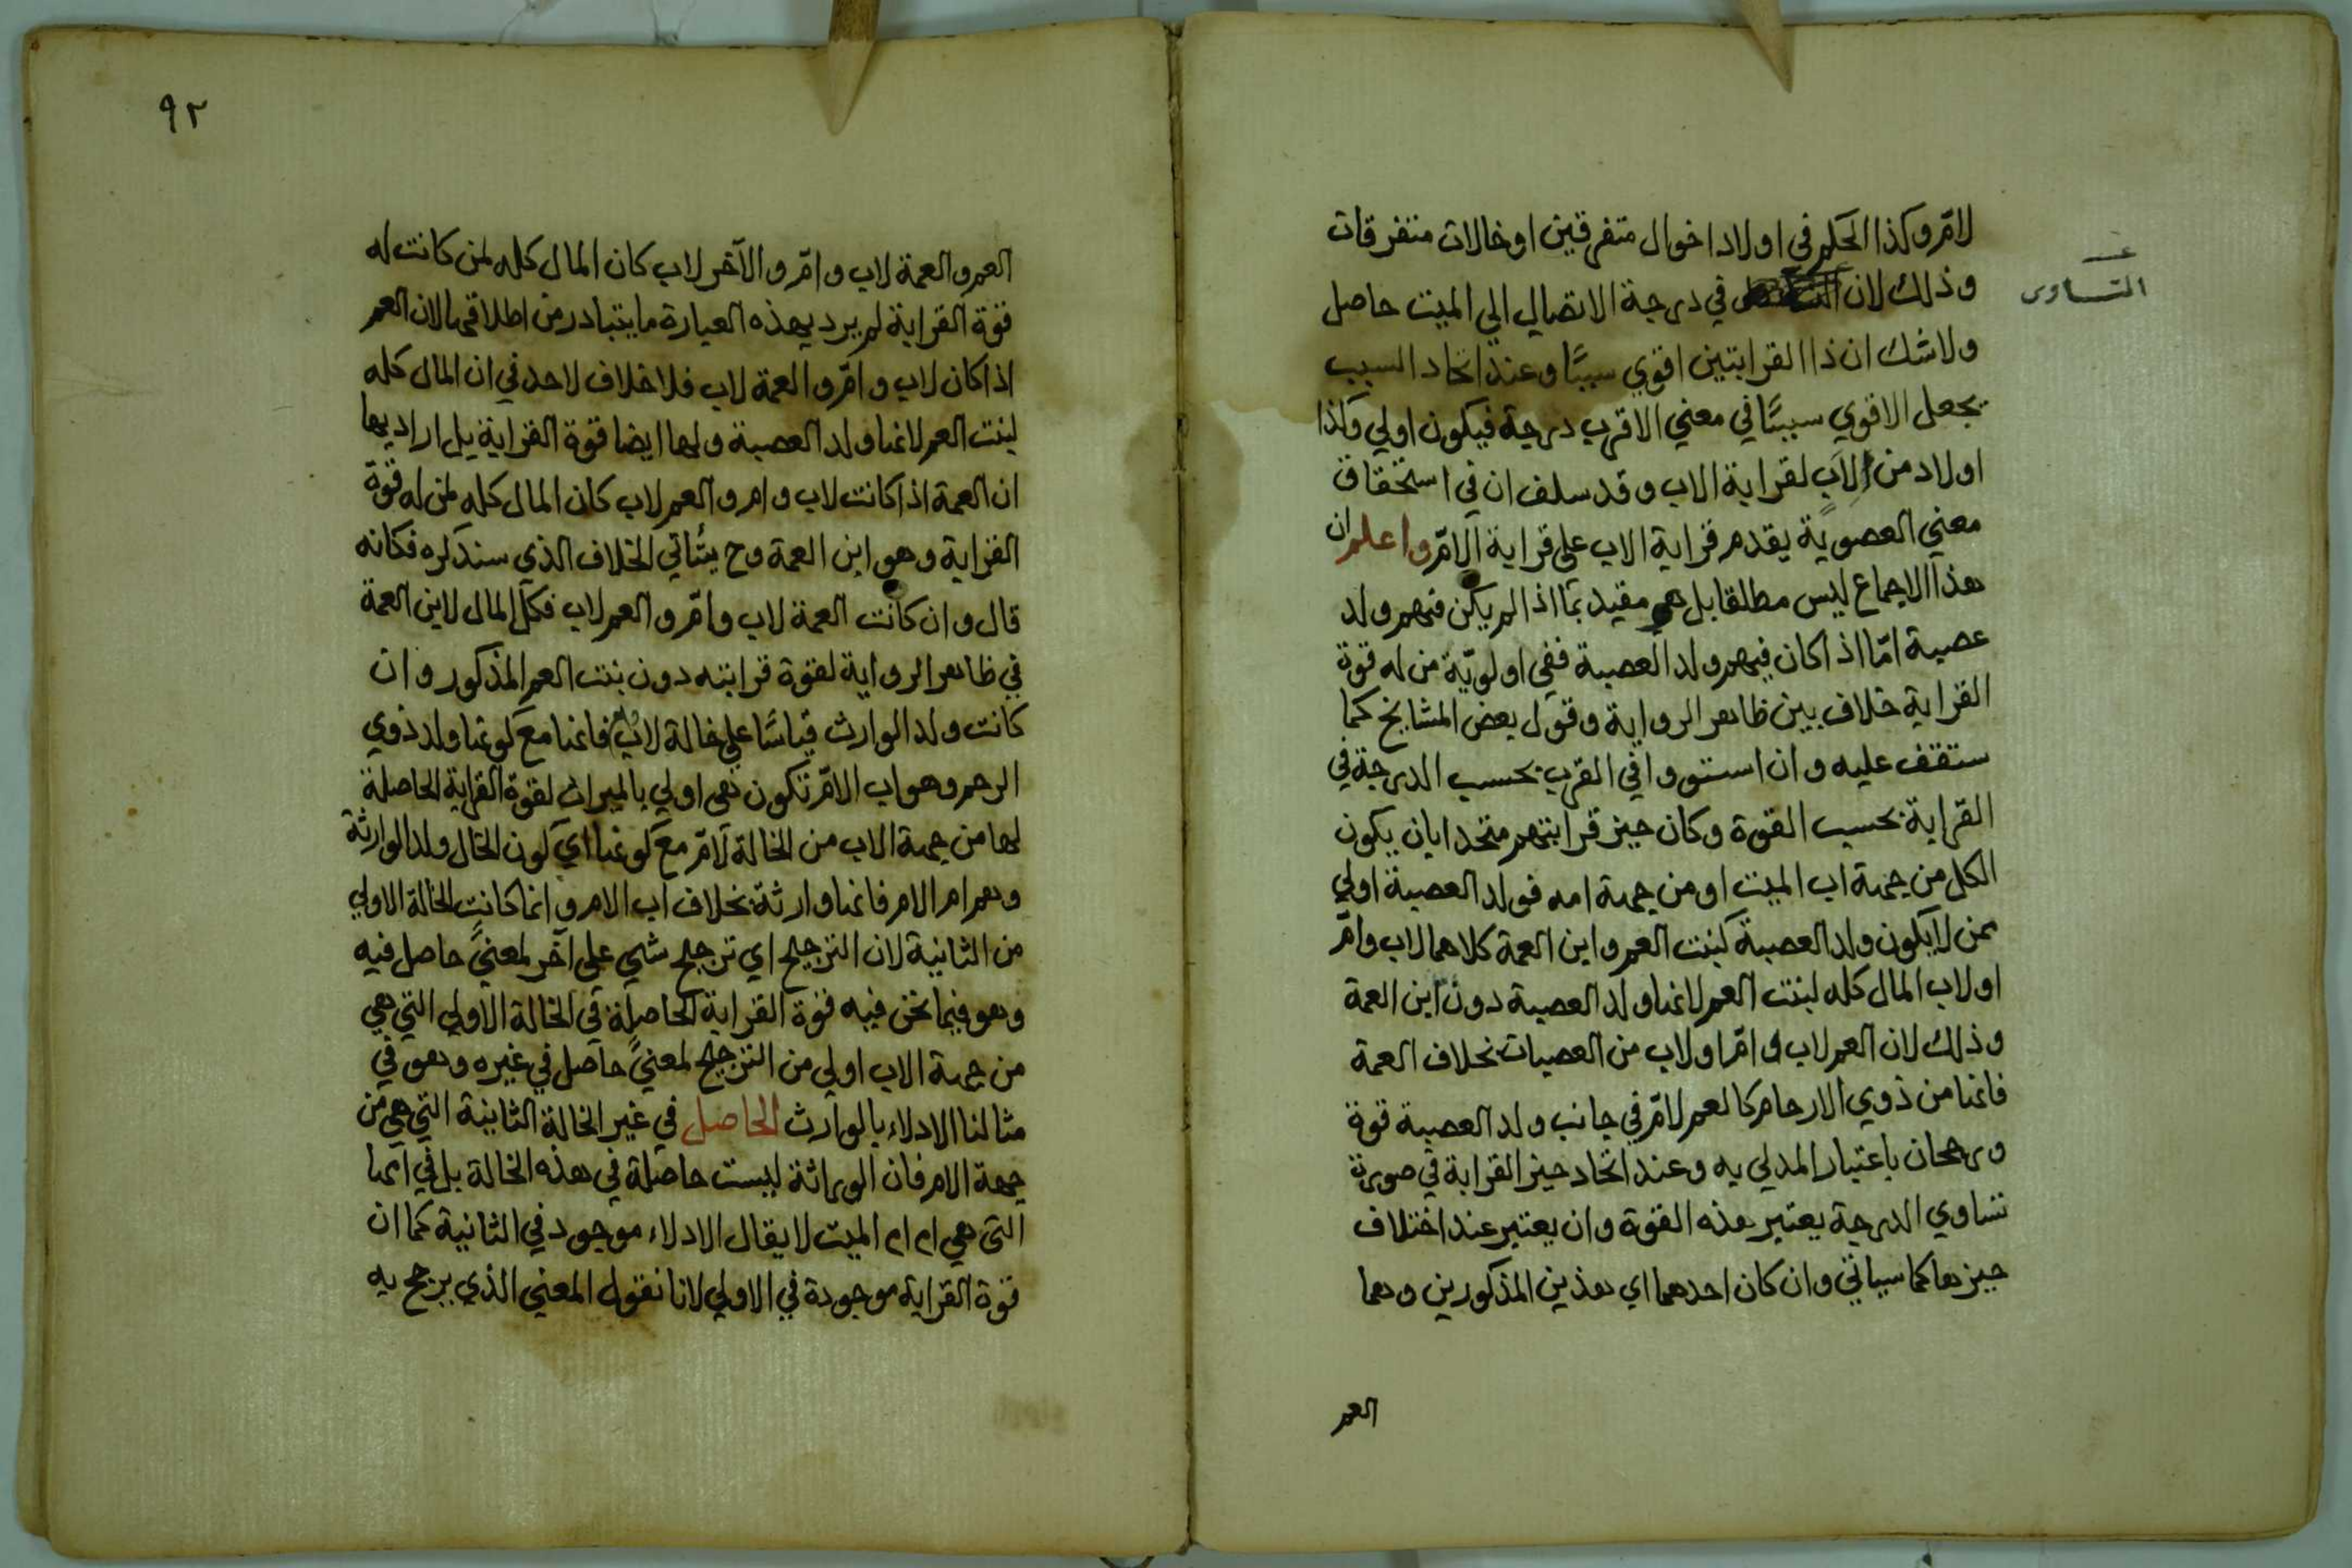 لامّ وكذا الحكم في اولاد اخوال متفرقين او خالات متفرقات
وذلك لان في درجة الاتصال الي الميت حاصل
التساوى
ولا شك ان ذا القرابتين اقوي سببًا وعند اتحاد السبب
يجعل الاقوي سببًا في معني الاقرب درجة فيكون اولي وكذا
اولاد من لاب لقرابة الاب وقد سلف ان في استحقاق
معني العصوبة يقدم قرابة الاب علي قرابة الامّ واعلم ان
هذا الاجماع ليس مطلقا بل هو مقيد بما اذا لم يكن فيهم ولد
عصبة امّا اذا كان فيهم ولد العصبة ففي اولويّة من له قوة
القرابة خلاف بين ظاهر الرواية وقول بعض المشايخ كما
ستقف عليه وان استووا في القرب بحسب الدرجة في
القرابة بحسب القوة وكان حيز قرابتهم متحدا بان يكون
الكل من جهة اب الميت او من جهة امه فولد العصبة اولي
ممن لا يكون ولد العصبة كبنت العم وابن العمة كلاهما لاب وامّ
او لاب المال كله لبنت العم لانها ولد العصبة دون ابن العمة
وذلك لان العم لاب وامّ او لاب من العصبات بخلاف العمة
فانها من ذوي الارحام كالعم لامّ في جانب ولد العصبة قوة
ورجحان باعتبار المدلي به وعند اتحاد حيز القرابة في صورة
تساوي الدرجة يعتبر هذه القوة وان يعتبر عند اختلاف
حيزها كما سياتي وان كان احدهما اي هذين المذكورين وهما
العم
٩٢
العم والعمة لاب وامّ والآخر لاب كان المال كله لمن كانت له
قوة القرابة لم يرد بهذه العبارة ما يتبادر من اطلاقها لان العم
اذا كان لاب وامّ والعمة لاب فلا خلاف لاحد في ان المال كله
لبنت العم لانها ولد العصبة ولها ايضا قوة القرابة بل اراد بها
ان العمة اذا كانت لاب وام والعم لاب كان المال كله لمن له قوة
القرابة وهو ابن العمة وح يتأتي الخلاف الذي سنذكره فكانه
قال وان كانت العمة لاب وامّ والعم لاب فكل المال لابن العمة
في ظاهر الرواية لقوة قرابته دون بنت العم المذكور وان
كانت ولد الوارث قياسًا علي خالة لاب فانها مع كونها ولد ذوي
الرحم وهو اب الامّ تكون هي اولي بالميراث لقوة القرابة الحاصلة
لها من جهة الاب من الخالة لامّ مع كونها اي كون الخال ولد الوارثة
وهم ام الام فانها وارثة بخلاف اب الام وانما كانت الخالة الاولي
من الثانية لان الترجيح اي ترجيح شي علي آخر لمعنيً حاصل فيه
وهو فيما نحن فيه قوة القرابة الحاصلة في الخالة الاولي التي هي
من جهة الاب اولي من الترجيح لمعنيً حاصل في غيره وهو في
مثالنا الادلاء بالوارث الحاصل في غير الخالة الثانية التي هي من
جهة الام فان الوراثة ليست حاصلة في هذه الخالة بل في امها
التي هي ام ام الميت لا يقال الادلاء موجود في الثانية كما ان
قوة القرابة موجودة في الاولي لانا نقول المعني الذي يرجح به